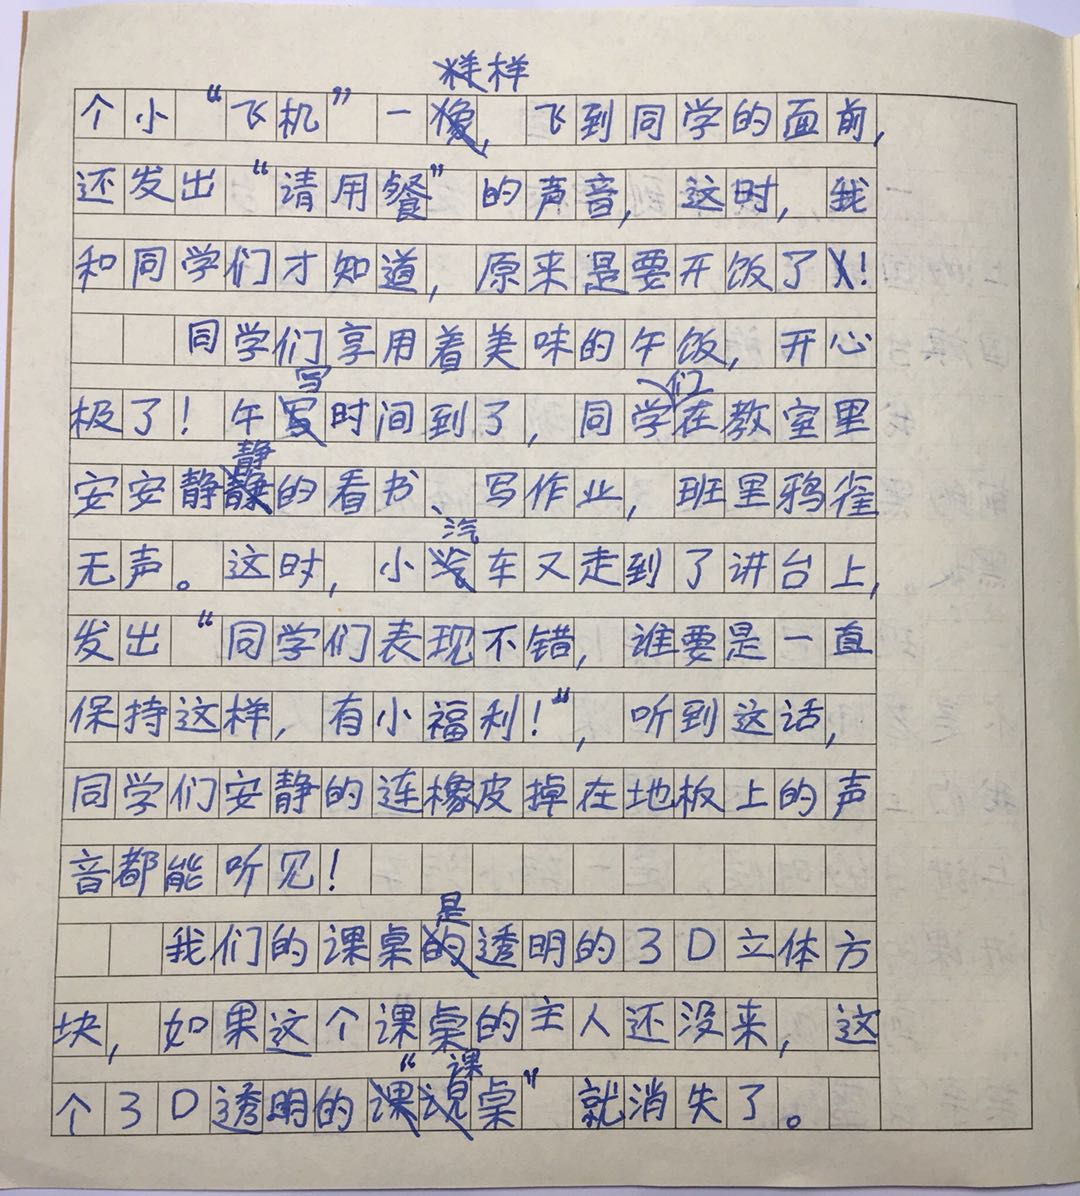 个小“飞机”一样，飞到同学的面前，
还发出“请用餐”的声音，这时，我
和同学们才知道，原来是要开饭了！
同学们享用着美味的午饭，开心
极了！午写时间到了，同学们在教室里
安安静静的看书、写作业，班里鸦雀
无声。这时，小汽车又走到了讲台上，
发出“同学们表现不错，谁要是一直
保持这样，有小福利！“，听到这话，
同学们安静的连橡皮掉在地板上的声
音都能听见！
我们的课桌是透明的3D立体方
块，如果这个课桌的主人还没来，这
个3D透明的“课桌”就消失了。